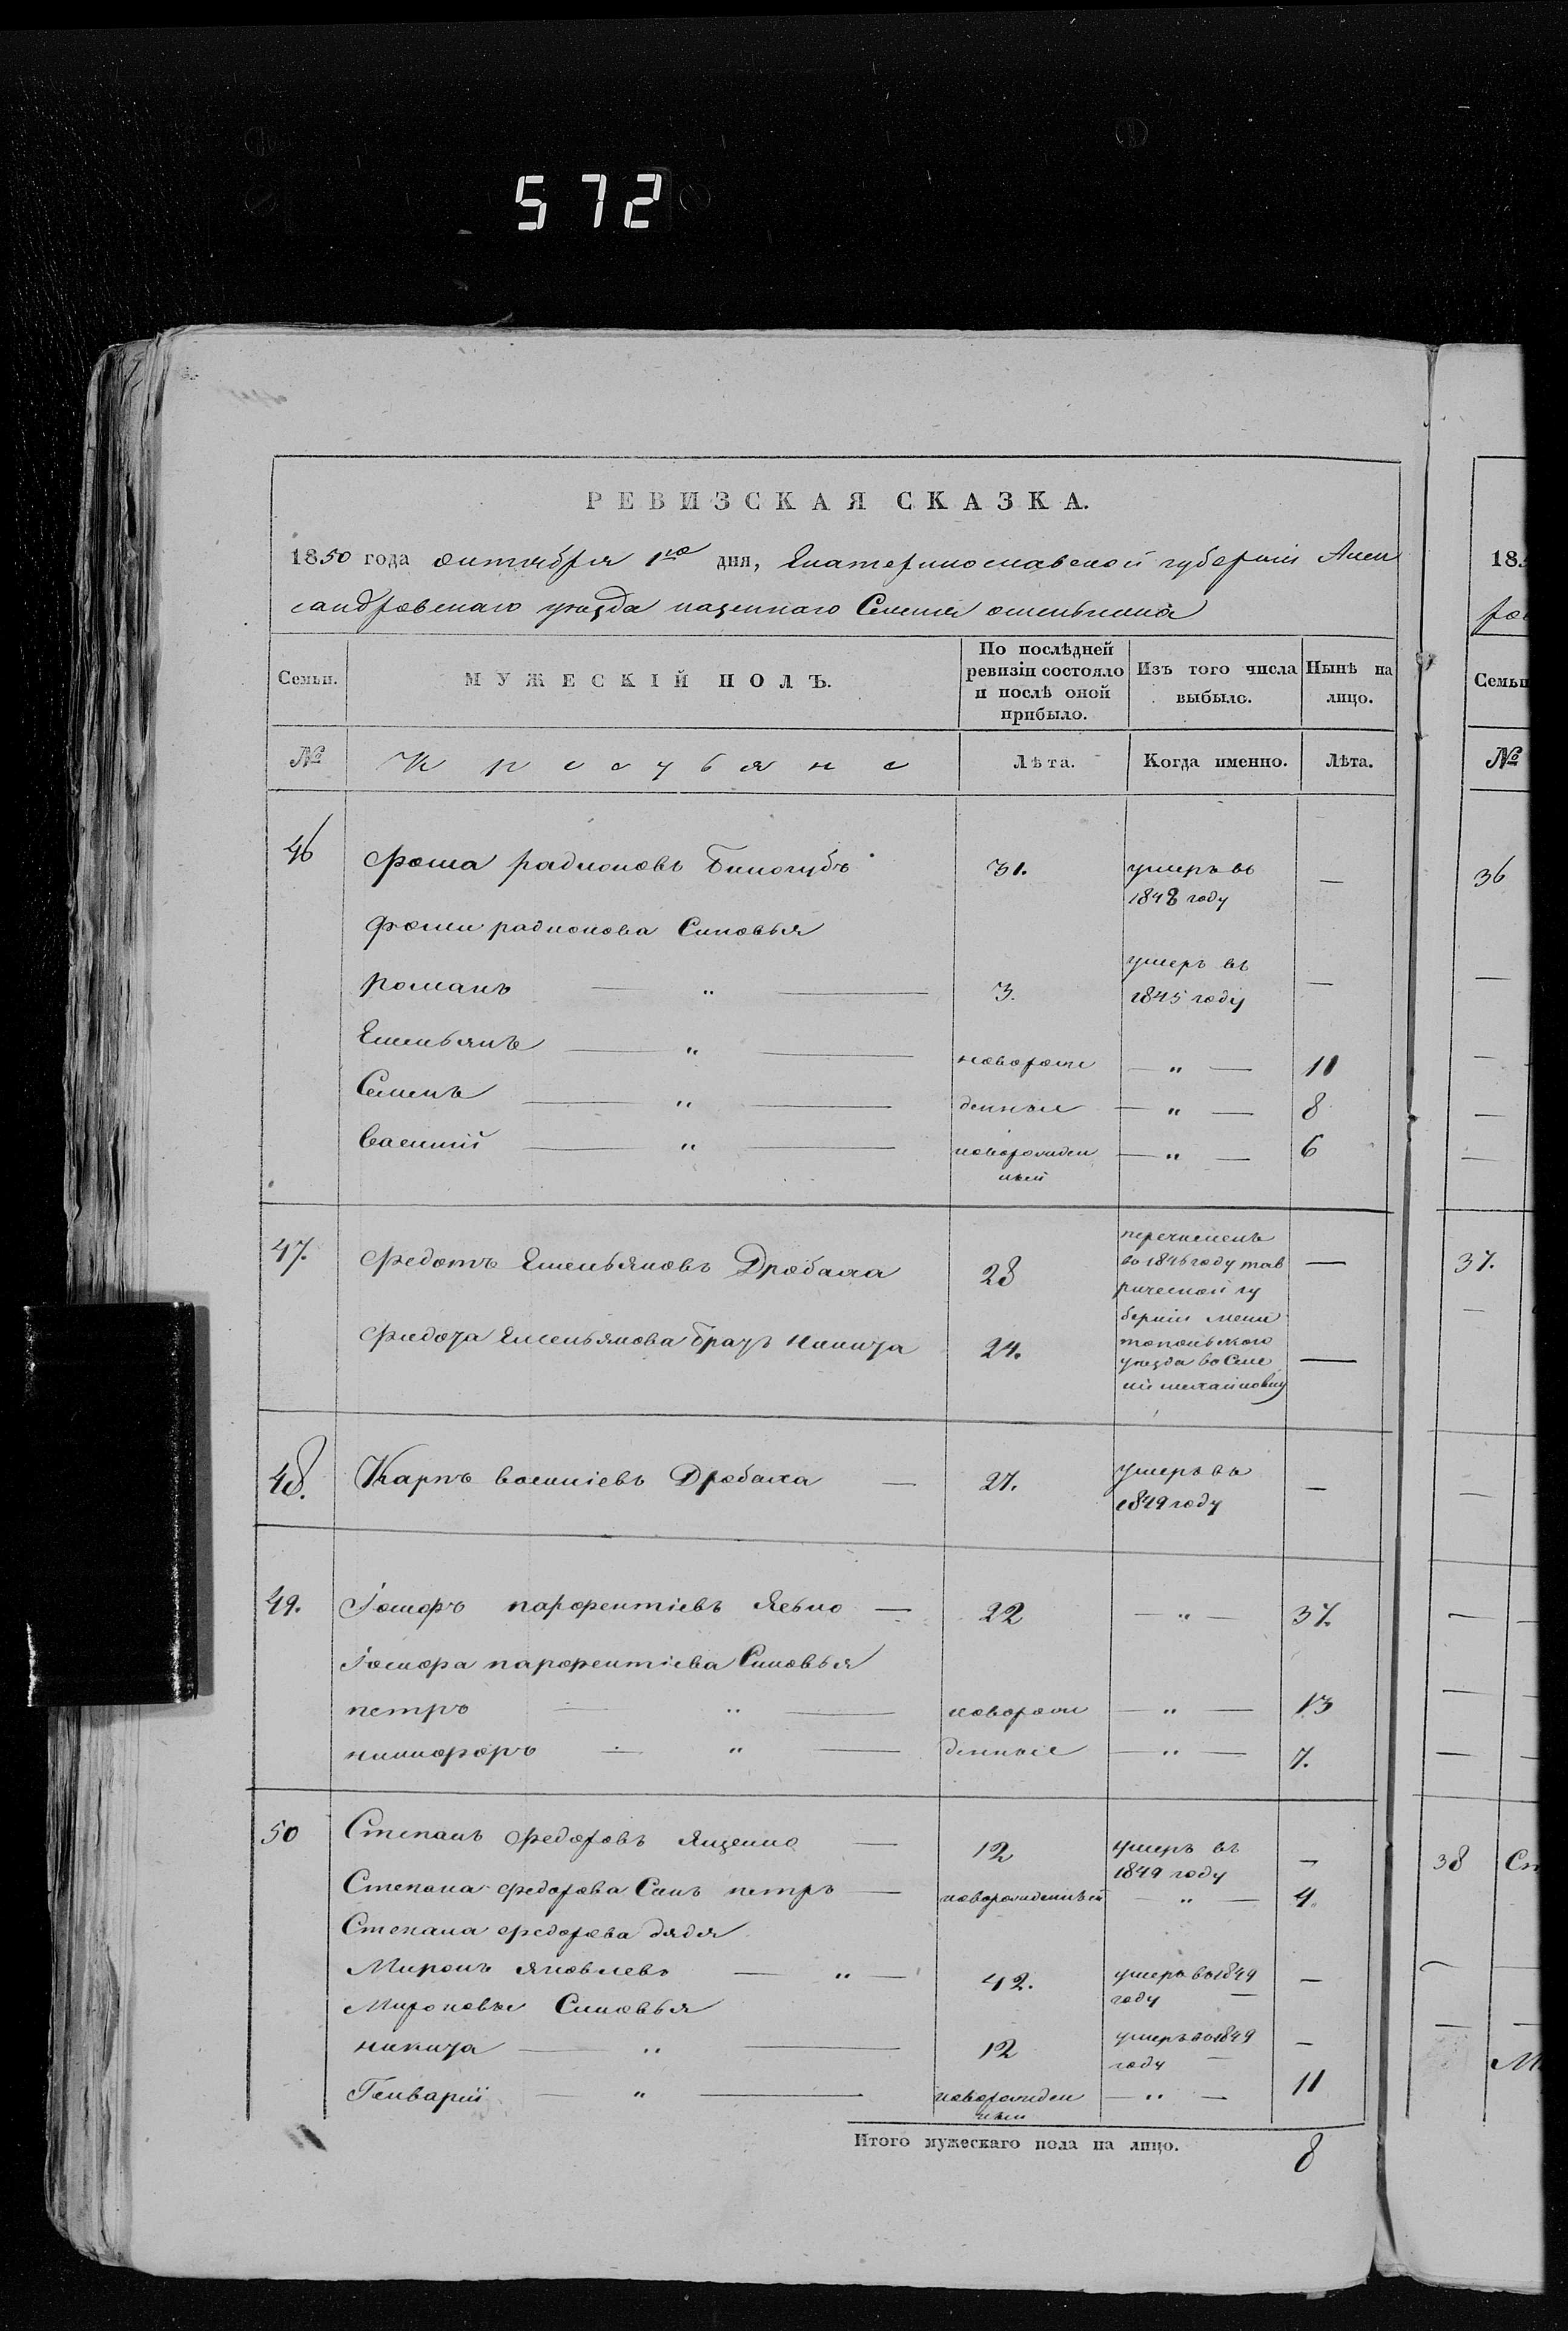 572
РЕВИЗСКАЯ СКАЗКА.
1850 года октября 1го дня, Екатеринославской губернии Алек
сандровскаго уезда казеннаго Селения
Семьи.
МУЖЕСКІЙ ПОЛЪ.
По послѣдней ревизіи состояло и послѣ оной прибыло.
Изъ того числа выбыло.
Нынѣ на лицо.
№
Крестьяне
Лѣта.
Когда именно.
Лѣта.
46 Фома радионовъ Билогубъ 31. умеръ въ 1848 году —
Фомы радионова Сыновья
романъ — " — 3. умеръ въ 1845 году —
Емельянъ — " — новорож — " — 11
Семенъ — " — денные — " — 8
Василий — " — новорожден ный — " — 6
47. Федотъ Емельяновъ Дробаха 28 перечисленъ —
во 1846 году тав
рической гу
Федота Емельянова братъ Никита 24. бернии мели —
топольского
уезда во Селе
ние михайловку
48. Карпъ василіевъ Дробаха — 27. умеръ въ 1849 году —
49. Іосифъ парфентіевъ — 22 — " — 37.
Іосифа парфентіева Сыновья
петръ — " — новорож — " — 13
никифоръ — " — денные — " — 7.
50 Степанъ федоровъ Яценко — 12 умеръ въ 1849 году —
Степана федорова Сынъ петръ — новорожденный — " — 4.
Степана федорова дядя
Миронъ яковлевъ — " — 42. умеръ во 1849 году — —
Мироновы Сыновья
никита — " — 12 умеръ во 1849 году — —
Генварий — " — новорожден ный — " — 11
Итого мужескаго пола на лицо. 8
18
Семьи
№
36
37.
38 Ст
М